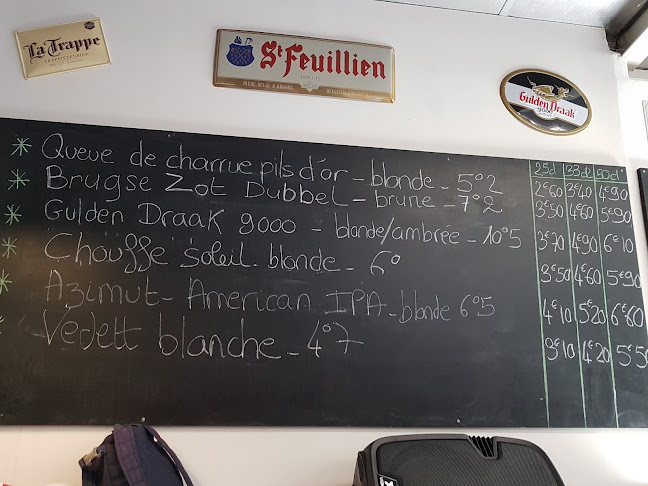 La Trappe
TRAPPISTENBIER
St Feuillien
Gulden Draak
25cl 33cl 50cl
* Queue de charrue pils d'or - blonde - 5°2 2€60 3€40 4€90
* Brugse Zot Dubbel - brune - 7°2 3€50 4€60 5€90
* Gulden Draak 9000 - blonde/ambrée - 10°5 3€70 4€90 6€10
* Chouffe soleil blonde - 6° 3€50 4€60 5€90
* Azimut - American IPA - blonde 6°5 4€10 5€20 6€60
Vedett blanche - 4°7 3€10 4€20 5€50